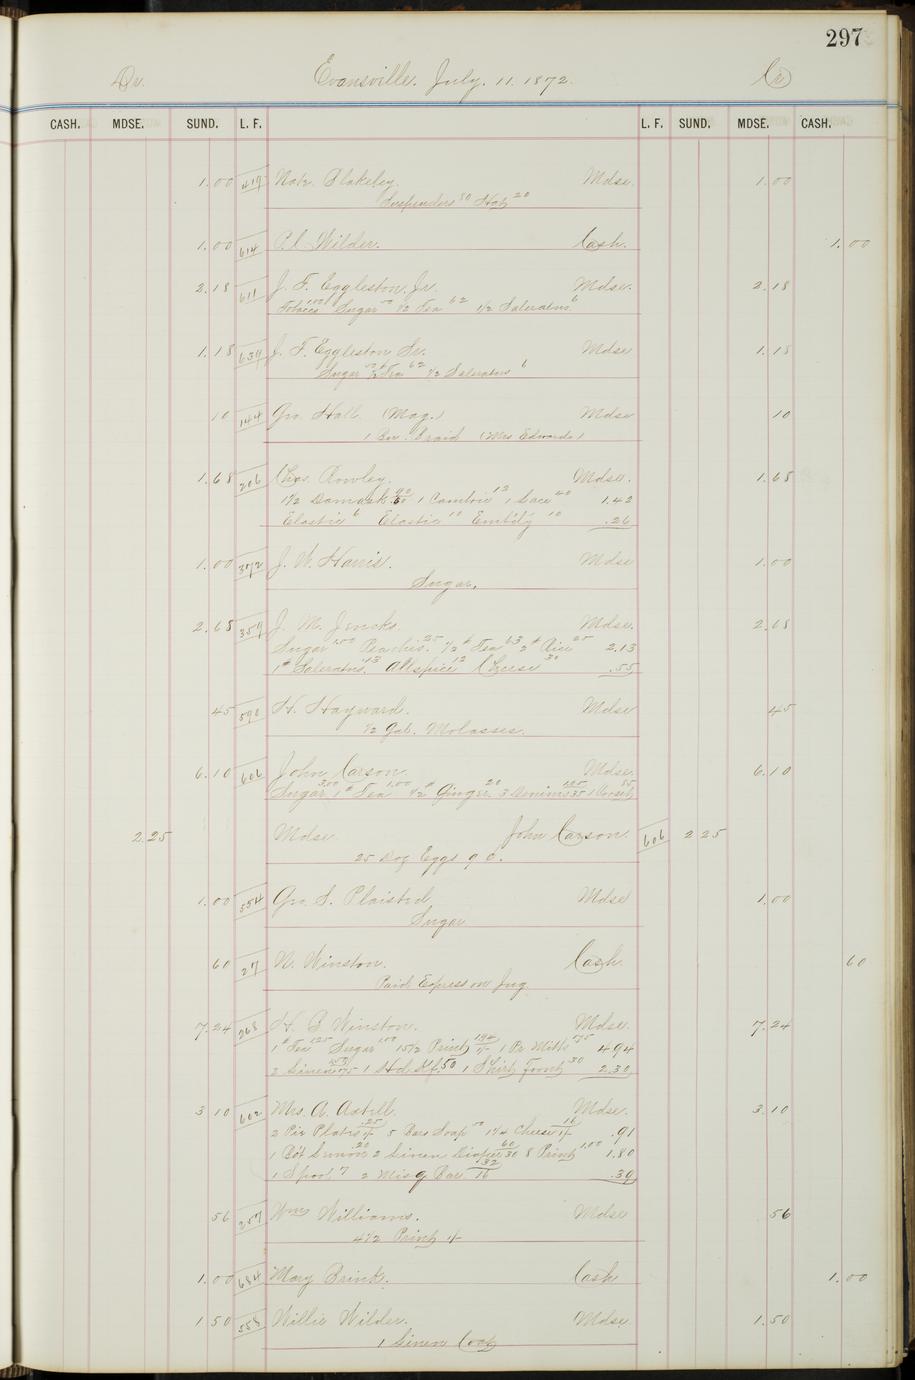 297
Dr. Evansville. July. 11. 1872. Cr
CASH. MDSE. SUND. L. F. L. F. SUND. MDSE. CASH.
1.00 419 Blakeley. Mdse. 1.00
Suspenders 80 20
1.00 614 Wilder. Cash. 1.00
2.18 611 J. F. Eggleston. Jr. Mdse. 2.18
Tobacco 1.00 Sugar 50 1/2 Tea 62 1/2 Saleratus 6
1.18 639 J. F. Eggleston Sr. Mdse 1.18
Sugar 50 1/2 Tea 62 1/2 Saleratus 6
10 144 Geo. Hall (Mag.) Mdse 10
1 Braid (Mrs Edwards)
1.68 206 Chas. Rowley. Mdse. 1.68
1 1/2 Damask 1 Cambric 12 1 Lace 40 1.42
Elastic 6 Elastic 10 10 .26
1.00 J. W. Harris. Mdse 1.00
Sugar.
2.68 359 J. M. Jencks Mdse. 2.68
Sugar 1.00 Peaches. 25 1/2 # Tea 63 2 # Rice 25 2.13
1 # Saleratus 13 Allspice 12 Cheese 30 .55
45 590 H. Hayward. Mdse 45
1/2 Gal. Molasses.
6.10 606 John Carson. Mdse. 6.10
Sugar 3.00 1 # Tea 1.00 1/2 # Ginger. 20 3 Denims 1.05 35 1 Corset 85
2.25 Mdse. John Carson. 606 2 25
25 Doz Eggs 9 c.
1.00 554 Geo. S. Plaisted Mdse 1.00
Sugar
60 27 N. Winston. Cash. 60
Paid Express on Jug
7.24 268 H. B. Winston. Mdse. 7.24
1 # Tea 1 25 Sugar 1 00 15 1/2 Print 1 94 1 Pr Mitts 75 4.94
2 Linen 75 1 Hd. Kf. 50 1 Shirt Front 30 2.30
3 10 602 Mrs. A. Axtell. Mdse. 3.10
2 Pie Plates 25 5 Bars Soap 50 1 1/4 Cheese 16 .91
1 Bot Lemon 20 2 Linen Diaper 60 30 8 Print 1.00 1.80
1 Spool 7 2 Bar 32 16 .39
56 257 Wm Williams. Mdse 56
4 1/2 Print
1.00 684 Mary Brink. Cash 1.00
1 50 558 Willie Wilder. Mdse. 1.50
1 Linen Coat